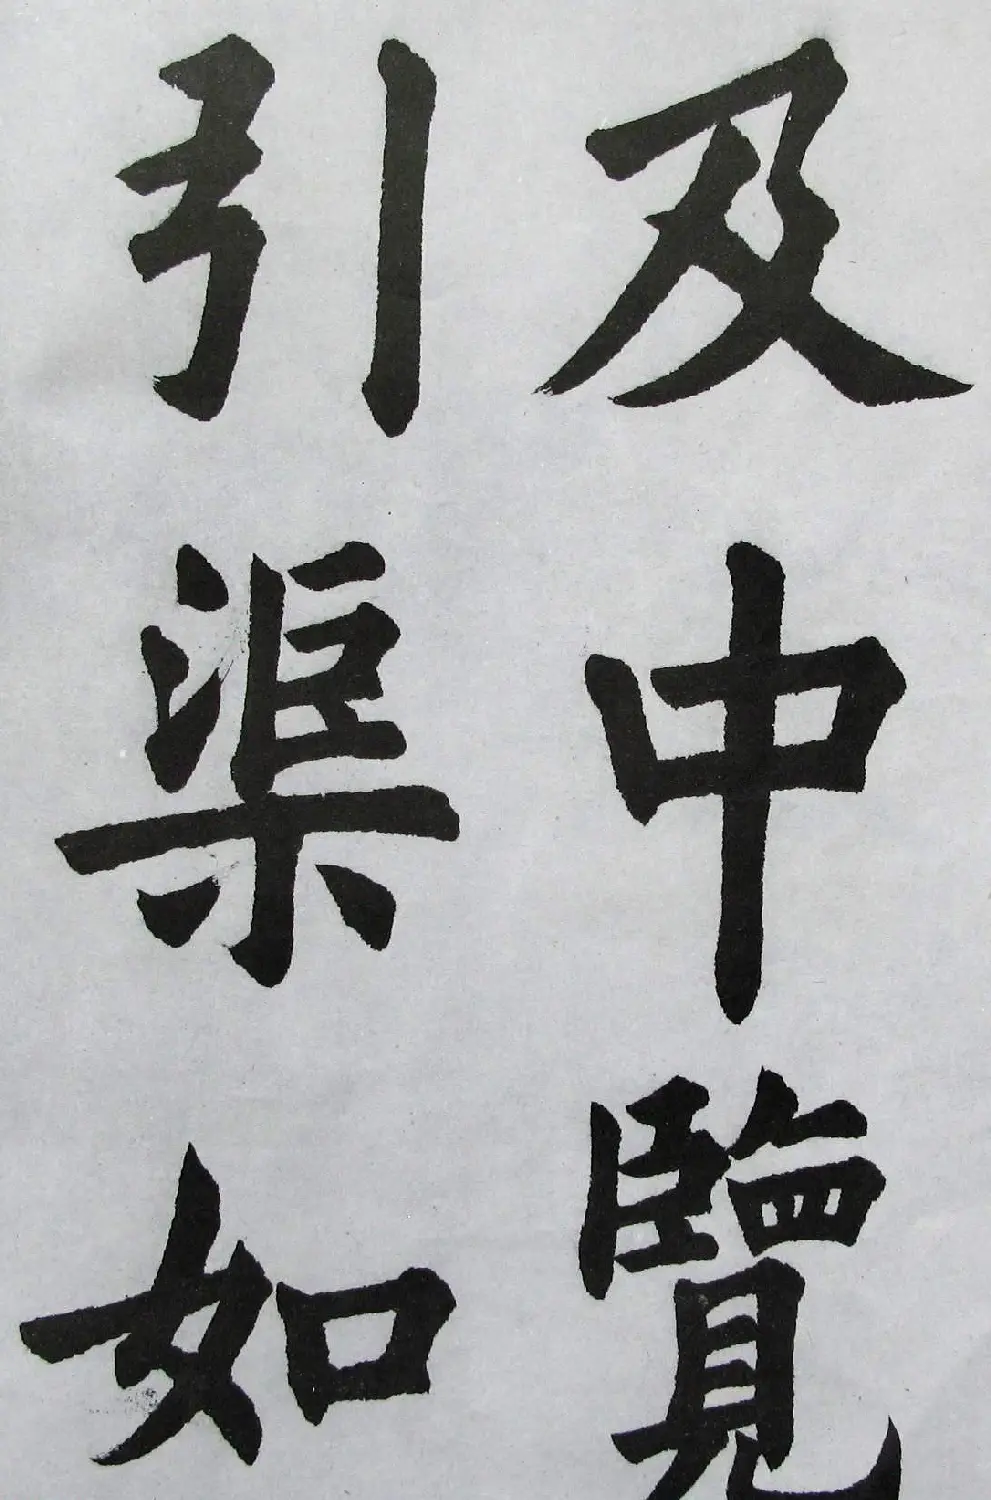 及中覽
引渠如